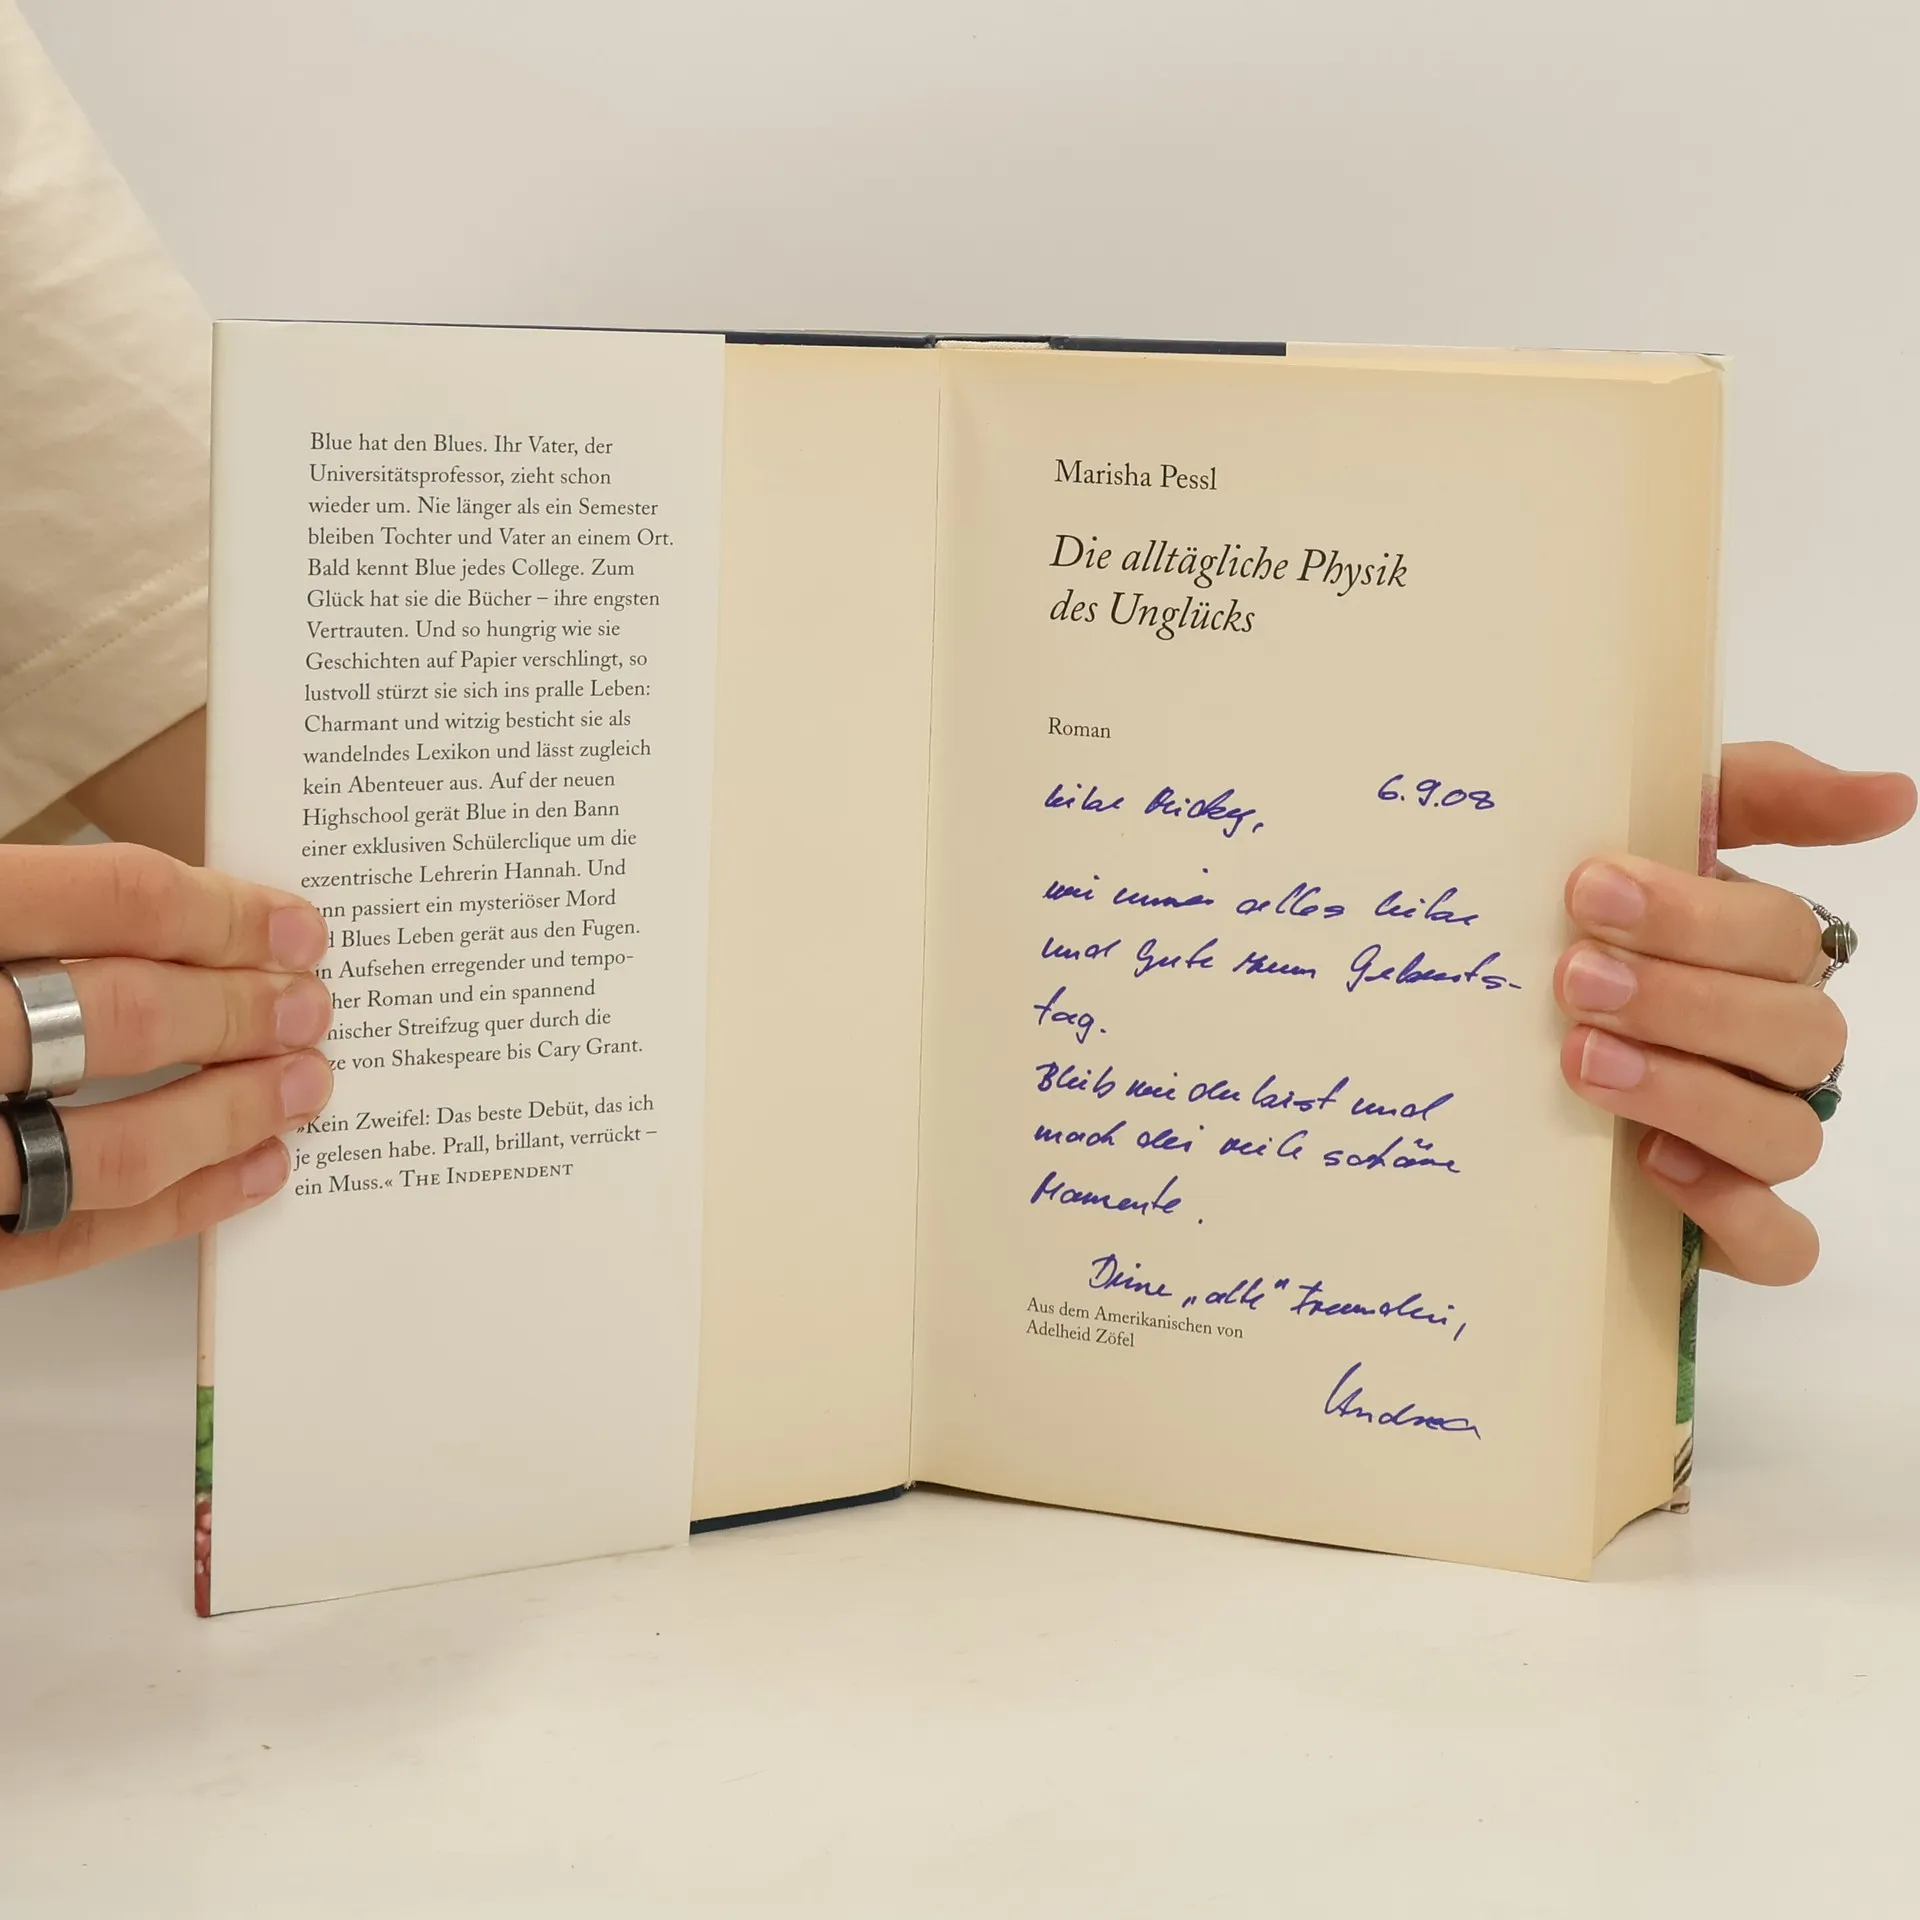 Blue hat den Blues. Ihr Vater, der
Universitätsprofessor, zieht schon
wieder um. Nie länger als ein Semester
bleiben Tochter und Vater an einem Ort.
Bald kennt Blue jedes College. Zum
Glück hat sie die Bücher – ihre engsten
Vertrauten. Und so hungrig wie sie
Geschichten auf Papier verschlingt, so
lustvoll stürzt sie sich ins pralle Leben:
Charmant und witzig besticht sie als
wandelndes Lexikon und lässt zugleich
kein Abenteuer aus. Auf der neuen
Highschool gerät Blue in den Bann
einer exklusiven Schülerclique um die
exzentrische Lehrerin Hannah. Und
passiert ein mysteriöser Mord
Blues Leben gerät aus den Fugen.
Aufsehen erregender und tempo-
her Roman und ein spannend
nischer Streifzug quer durch die
ze von Shakespeare bis Cary Grant.
»Kein Zweifel: Das beste Debüt, das ich
je gelesen habe. Prall, brillant, verrückt –
ein Muss.« THE INDEPENDENT
Marisha Pessl
Die alltägliche Physik
des Unglücks
Roman
6.9.08
liebe
wie immer alles liebe
und Gute zum Geburts-
tag.
Bleib wie du bist und
mach dir viele schöne
Momente.
Deine „alte" Freundin,
Aus dem Amerikanischen von
Adelheid Zöfel
Andrea